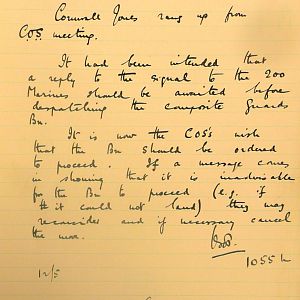 Cornwall Jones rang up from
COS meeting.
It had been intended that
a reply to the signal to the 200
Marines should be awaited before
despatching the composite Guards
Bn.
It is now the COS's wish
that the Bn should be ordered
to proceed. If a message comes
in showing that it is inadvisable
for the Bn to proceed (e.g. if
it could not land) they may
reconsider and if necessary cancel
the move.
1055 h
12/5